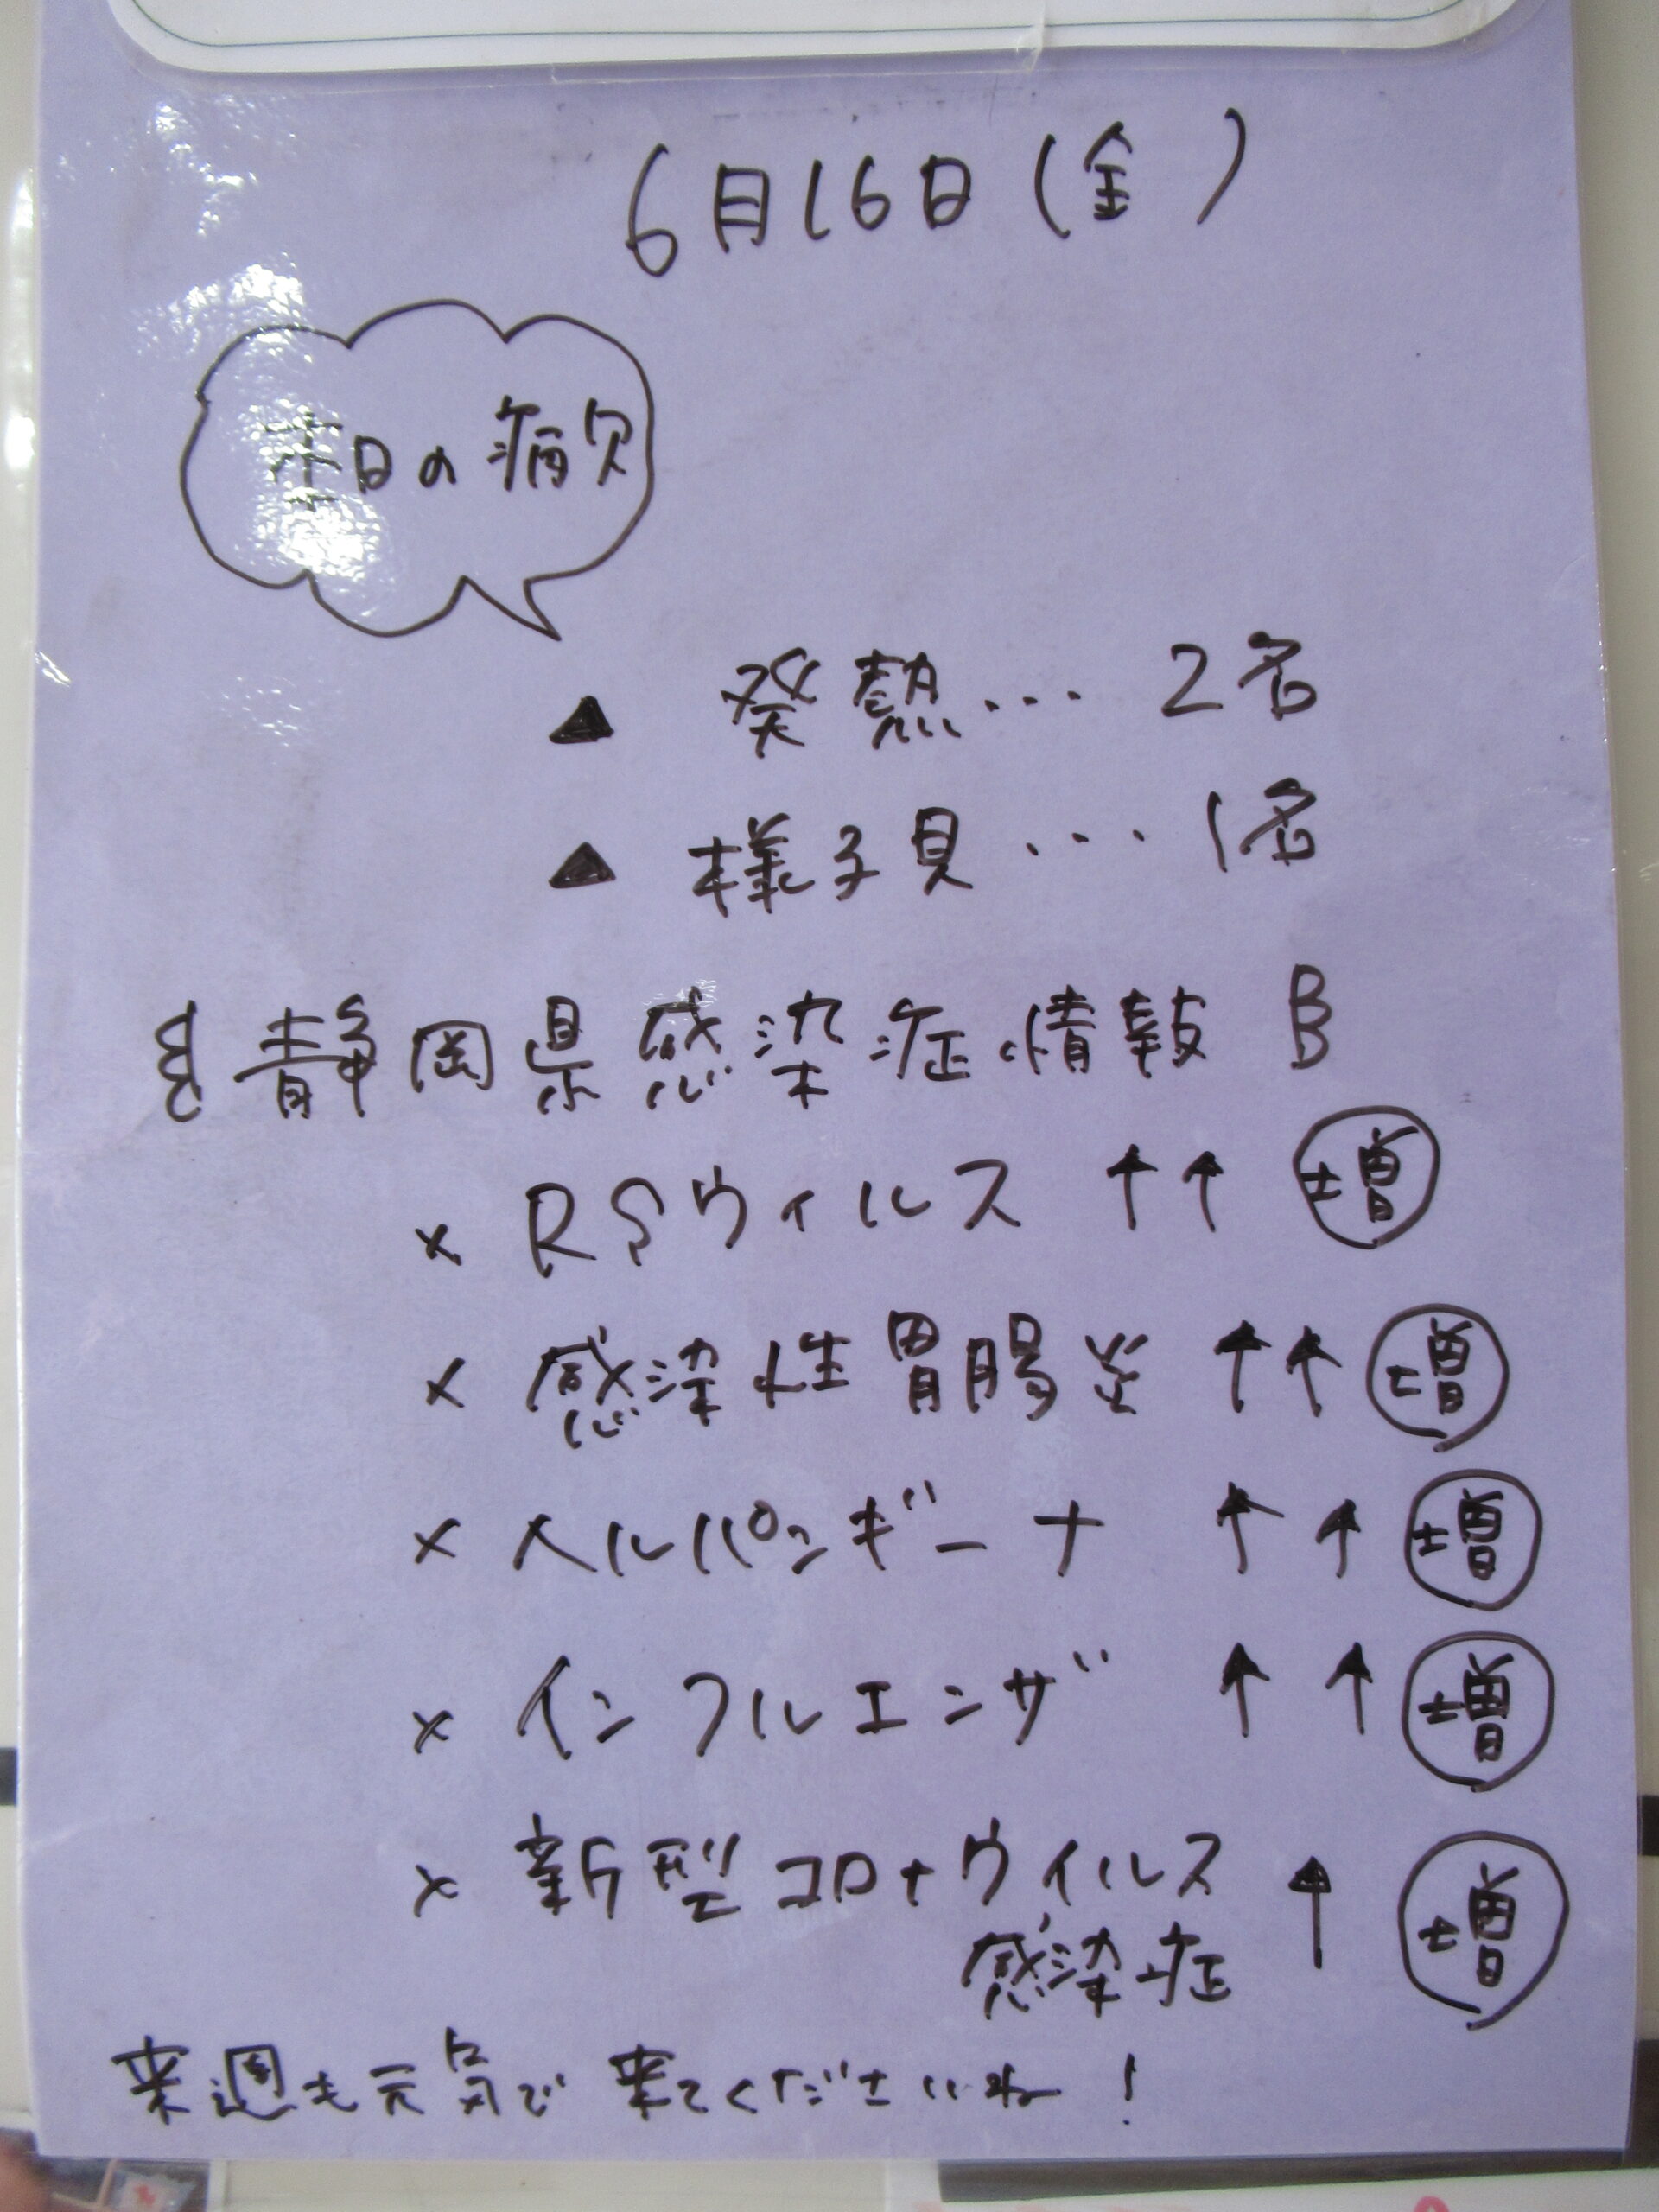 6月16日(金)
本日の病欠
▲ 発熱… 2名
▲ 様子見… 1名
静岡県感染症情報
× RSウィルス ↑↑ 増
× 感染性胃腸炎 ↑↑ 増
× ヘルパンギーナ ↑↑ 増
× インフルエンザ ↑↑ 増
× 新型コロナウイルス
感染症 ↑ 増
来週も元気で来てくださいね!